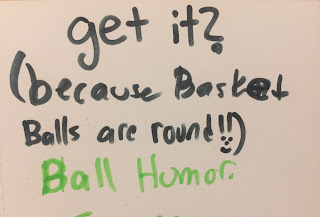 get it?
(because Basket
Balls are round!!)
Ball Humor.